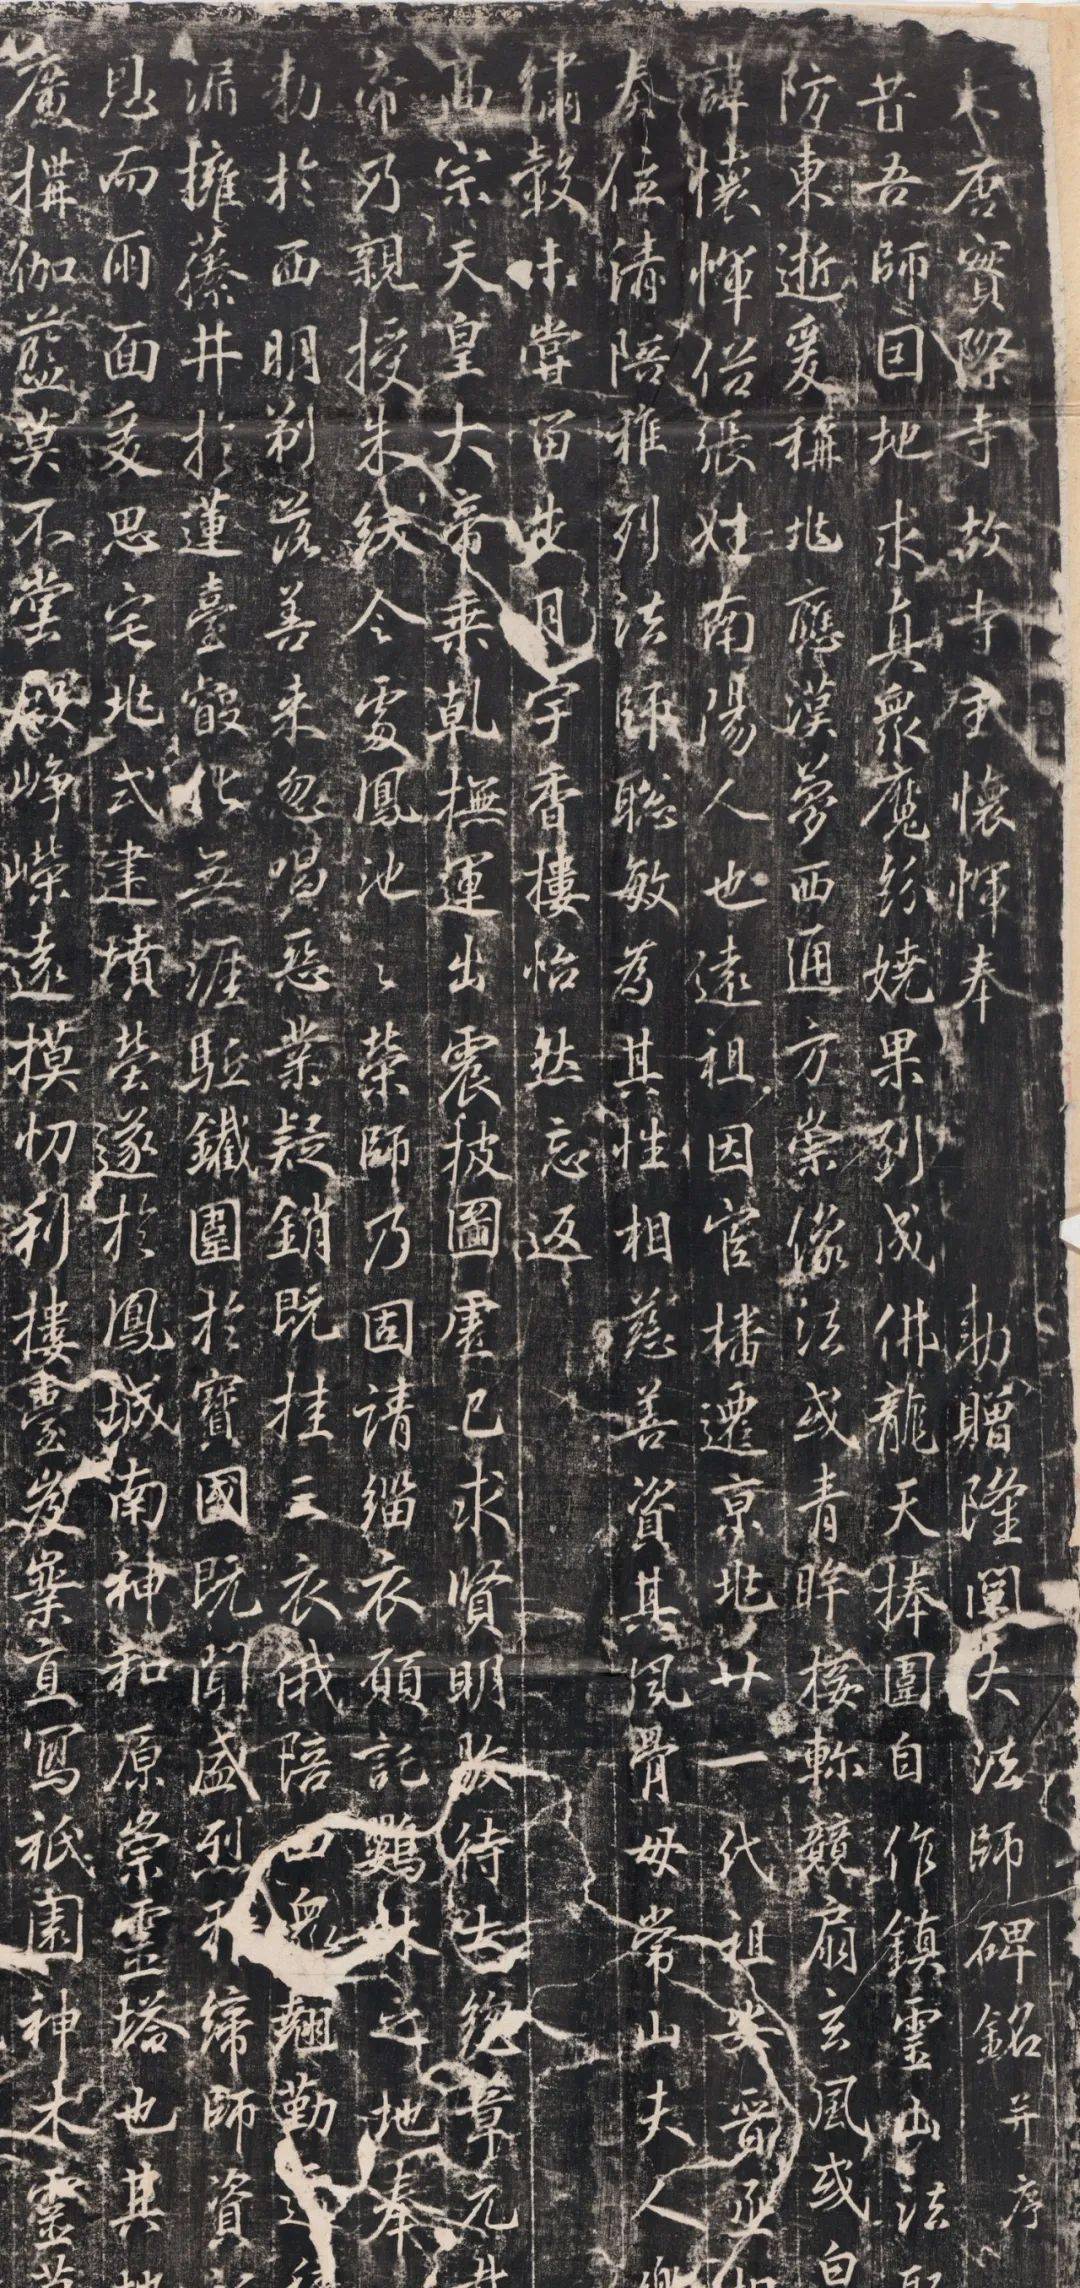 大唐實際寺故寺主懷惲奉 勅贈隆闡大法師碑銘并序
昔吾師因地求真衆魔紛嬈果到成佛龍天捧圍自作鎮靈山法
防東逝爰稱兆應漢夢西通方崇像法或青眸接軫競扇玄風或白
諱懷惲俗張姓南陽人也遠祖因官播遷京兆廿一代祖安晉丞相
奉佳清陪雅列法師聡敏爲其性相慈善資其風骨母常山夫人樂
繡轂未嘗留步月宇香樓怡然忘返
高宗天皇大帝乗乹撫運出震披圖虔己求賢明敭待士総章元
帝乃親授朱紱令處鳳池之榮師乃固請緇衣願託鶴林之地奉
勅於西明剃落善来忽唱惡業疑銷既挂三衣俄陪四衆翹勤
漏擁藤井於蓮臺毅化無涯駈鐵圍於寶國既聞盛烈雅締師資
恩而雨面爰思宅兆式建墳塋遂於鳳城南神和原崇靈塔也其
廣搆伽藍莫不堂殿崢嶸遠模忉利樓臺岌嶪直寫祇園神木靈草